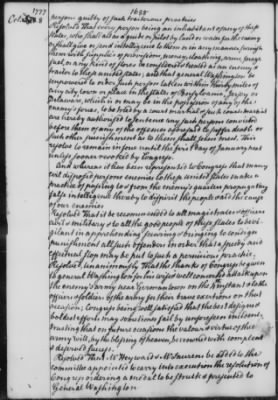 1777
October 8
person guilty of such traiterous practices
Resolved That every person being an inhabitant of any of these
States, who shall act as a guide or pilot by land or water for the enemy
or shall give or send intelligence to them or in any manner furnish
them with supplies of provisions, money, cloathing, arms, forage
fuel, or any kind of stores be considered & treated as an enemy &
traitor to these united states; and that general Washington be
empowered to order such person taken within thirty miles of
any city town or place in the States of Pensylvania, Jersey or
Delaware, which is or may be in the possession of any of the
enemy's forces, to be tried by a court martial & such court martial
are hereby authorized to sentence any such persons convicted
before them of any of the offences aforesaid to suffer death or
such other punishment as to them shall seem meet. This
resolve to remain in force until the first day of January next
unless sooner revoked by Congress.
And whereas it has been represented to Congress that many
evil disposed persons enemies to these united States make a
practice of passing to & from the enemy's quarters propagating
false intelligence thereby to dispirit the people & aid the cause
of our enemies
Resolved That it be recommended to all magistrates & officers
civil & military & to all the good people of these States to be vi-
gilant in apprehending securing & bringing to condign
punishment all such offenders in order that a speedy and
effectual stop may be put to such a pernicious practice.
Resolved unanimously That the thanks of Congress be given
to general Washington for his wise & well concerted attack upon
the enemy's army near Germantown on the 4 instant & to the
officers & soldiers of the army for their brave exertions on that
occasion; Congress being well satisfied that the best designs &
boldest efforts may sometimes fail by unforeseen incidents,
trusting that on future occasions the valour & virtue of the
army will, by the blessing of heaven, be crowned with complete
& deserved success.
Resolved That Mr Heyward & Mr Laurens be added to the
committee appointed to carry into execution the resolution of
Congress ordering a medal to be struck & presented to
General Washington